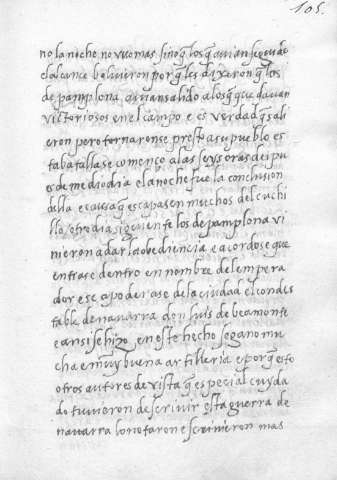 105.
no la noche no vuo mas sino q̃ los q̃ auian seguido
el alcance boluieron porq̃ les dixeron q̃ los
de pamplona auian salido a los q̃ quedauan
victoriosos en el campo e es verdad q̃ sali
eron pero tornaronse presto a su pueblo es
ta batalla se començo a las seys oras des pu
es de mediodia e la noche fue la conclusion
della e causa q̃ escapasen muchos del cuchi
llo, otro dia siguiente los de pamplona vi
nieron a dar la obediencia e acordose que
entrase dentro en nombre del empera
dor e se apoderase de la ciudad el condes
table de nauarra don luis de beamonte
e ansi se hizo, en este hecho se gano mu
cha e muy buena artilleria e porq̃ esto
otros autores de vista q̃ especial cuyda
do tuuieron de screuir esta guerra de
nauarra lo notaron e scriuieron mas